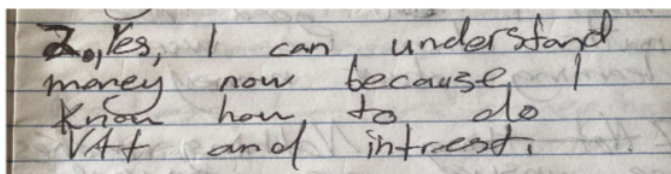 2., Yes, I can understand
money now because I
know how to do
VAt and intrest.